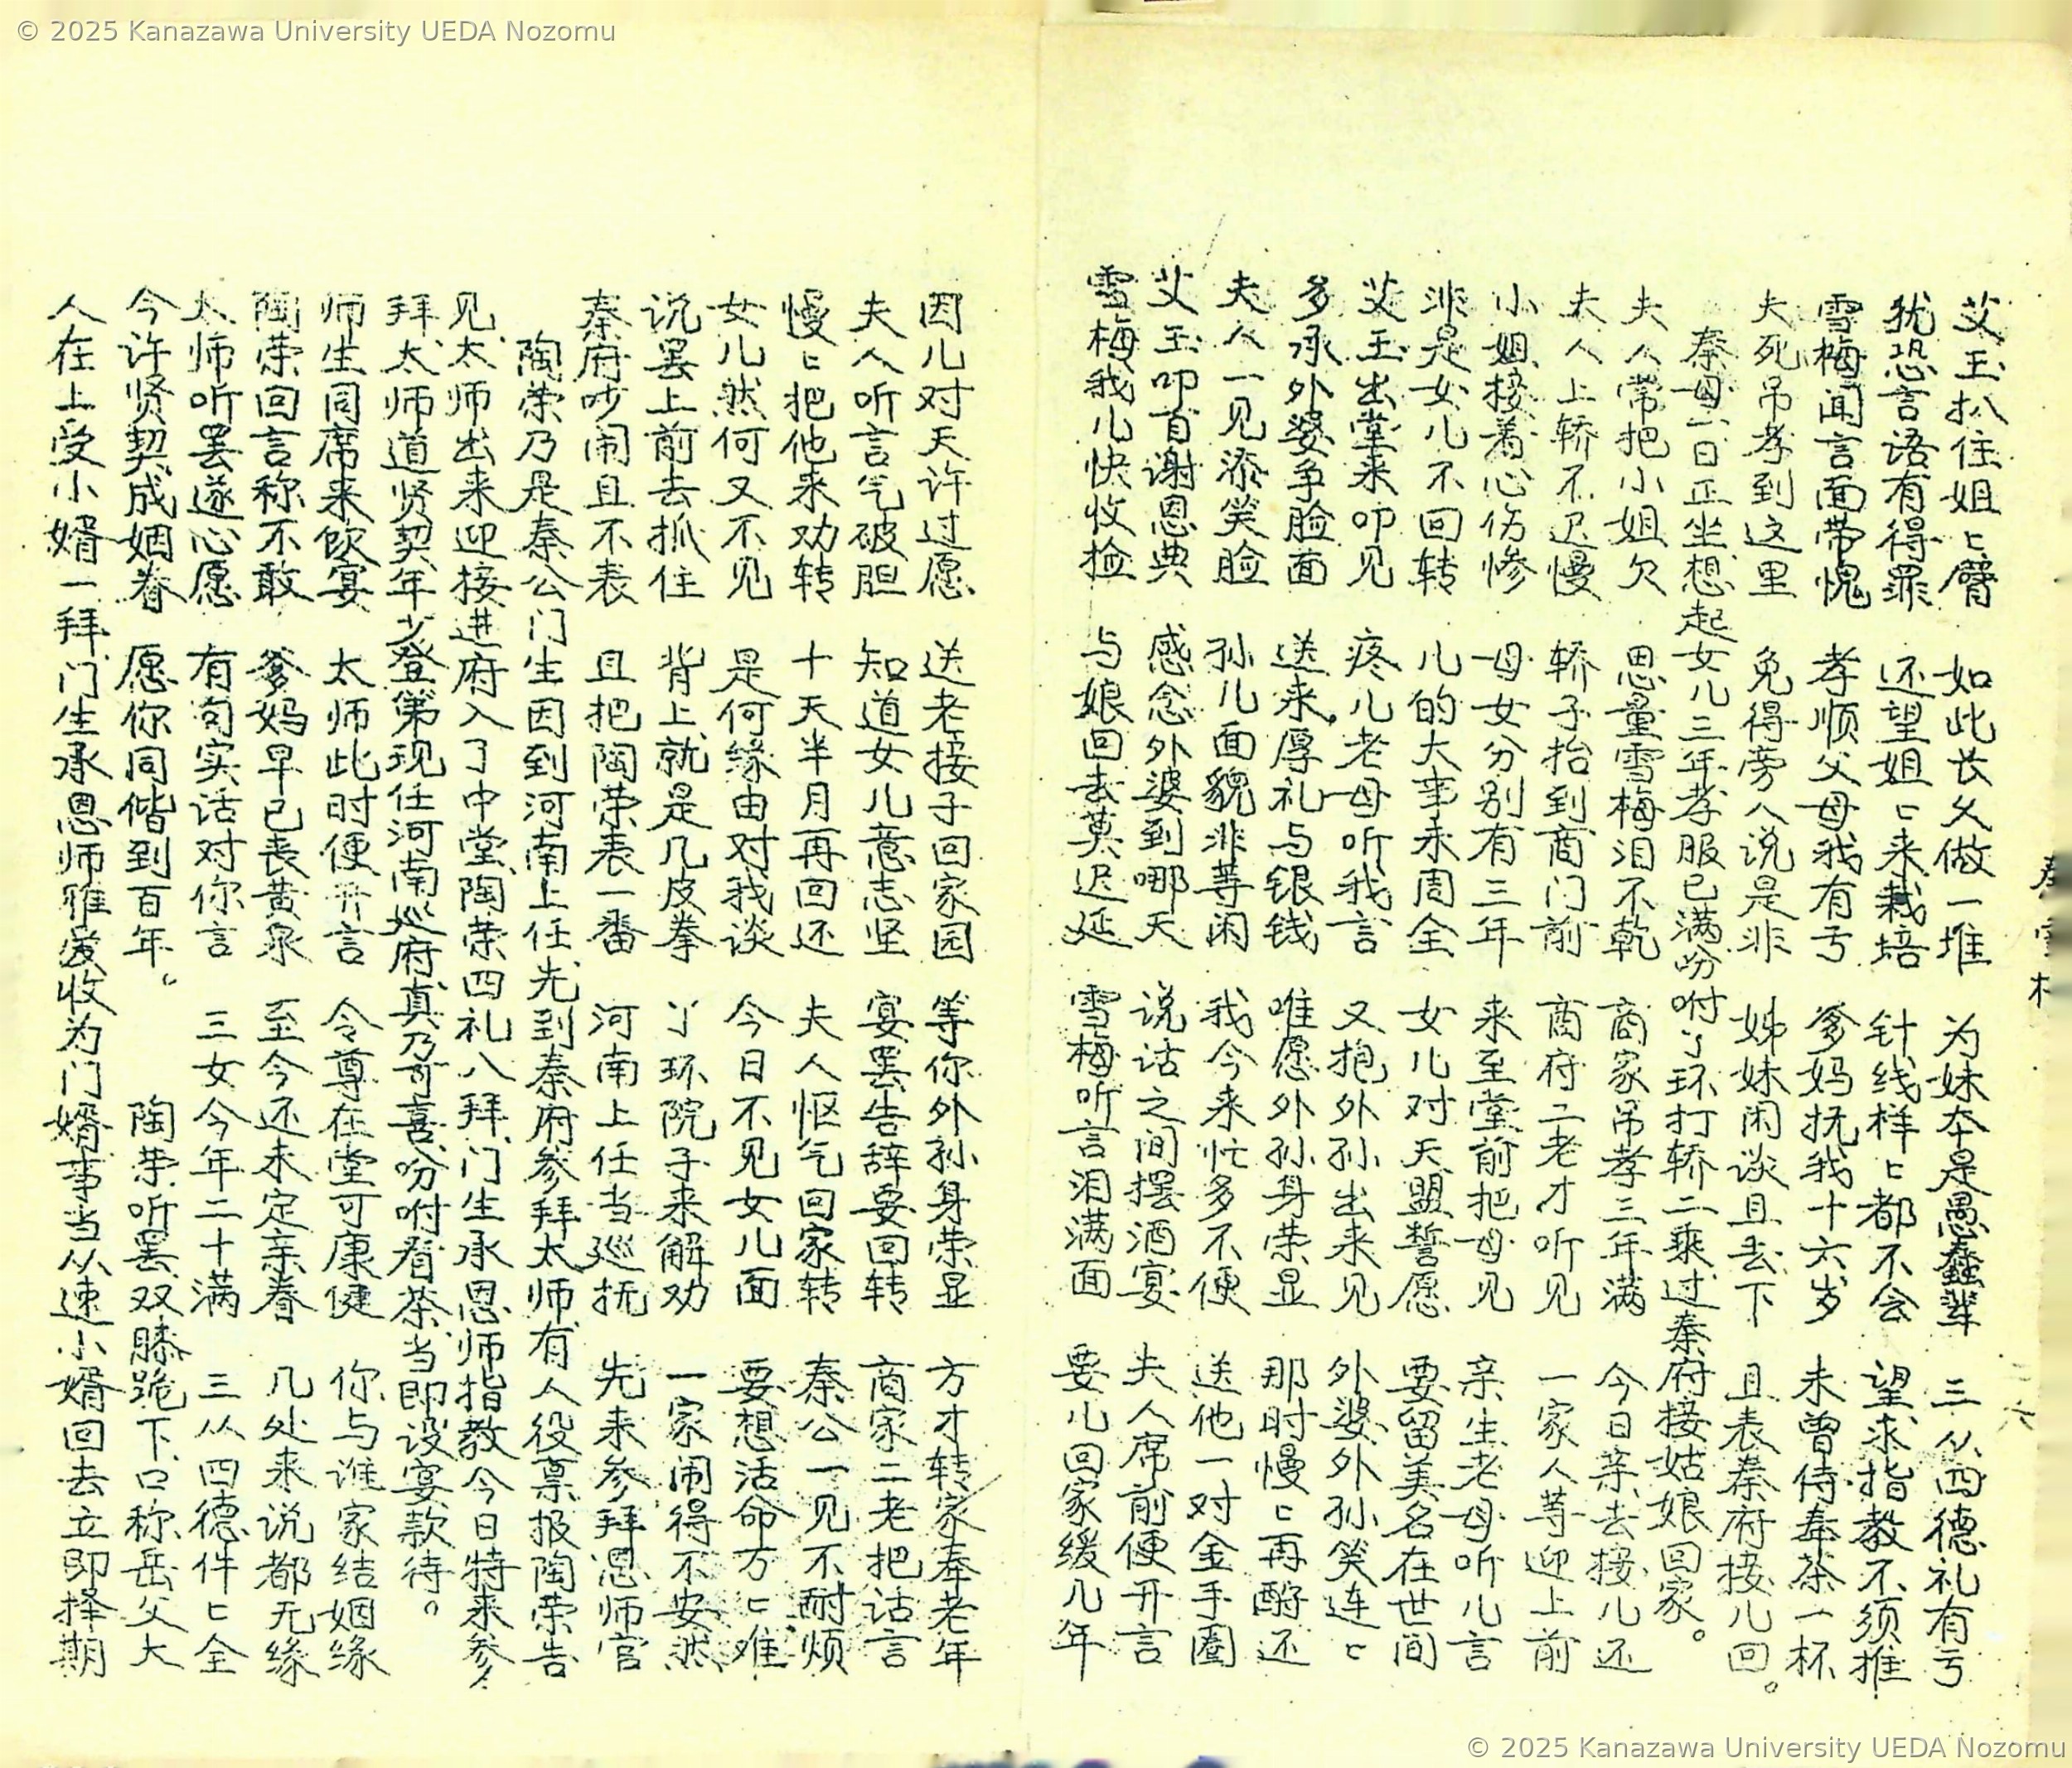 © 2025 Kanazawa University UEDA Nozomu
艾玉扒住姐〻臂 如此长久做一堆 为妹本是愚蠢辈 三从四德礼有亏
犹恐言语有得罪 还望姐〻来栽培 针线样〻都不会 望求指教不须推
雪梅闻言面带愧 孝顺父母我有亏 爹妈抚我十六岁 未曾侍奉茶一杯
夫死吊孝到这里 免得旁人说是非 姊妹闲谈且丢下 且表秦府接儿回。
秦母一日正坐想起女儿三年孝服已满吩咐丫环打轿二乘过秦府接姑娘回家。
夫人常把小姐欠 思量雪梅泪不乾 商家吊孝三年满 今日亲去接儿还
夫人上轿不迟慢 轿子抬到商门前 商府二老才听见 一家人等迎上前
小姐接着心伤惨 母女分别有三年 来至堂前把母见 亲生老母听儿言
非是女儿不回转 儿的大事未周全 女儿对天盟誓愿 要留美名在世间
艾玉出堂来叩见 疼儿老母听我言 又抱外孙出来见 外婆外孙笑连〻
多承外婆争脸面 送来厚礼与银钱 唯愿外孙身荣显 那时慢〻再酧还
夫人一见添笑脸 孙儿面貌非等闲 我今来忙多不便 送他一对金手圈
艾玉叩首谢恩典 感念外婆到哪天 说话之间摆酒宴 夫人席前便开言
雪梅我儿快收捡 与娘回去莫迟延 雪梅听言泪满面 要儿回家缓几年
因儿对天许过愿 送老接子回家园 等你外孙身荣显 方才转家奉老年
夫人听言气破胆 知道女儿意志坚 宴罢告辞要回转 商家二老把话言
慢〻把他来劝转 十天半月再回还 夫人怄气回家转 秦公一见不耐烦
女儿然何又不见 是何缘由对我谈 今日不见女儿面 要想活命万〻难
说罢上前去抓住 背上就是几皮拳 丫环院子来解劝 一家闹得不安然
秦府吵闹且不表 且把陶荣表一番 河南上任当巡抚 先来参拜恩师官
陶荣乃是秦公门生因到河南上任先到秦府参拜太师有人役禀报陶荣告
见太师出来迎接进府入了中堂陶荣四礼八拜门生承恩师指教今日特来参
拜太师道贤契年少登第现任河南巡府真乃可喜吩咐看茶当即设宴款待。
师生同席来飲宴 太师此时便开言 令尊在堂可康健 你与谁家结姻缘
陶荣回言称不敢 爹妈早已丧黄泉 至今还未定亲眷 几处来说都无缘
太师听罢遂心愿 有句实话对你言 三女今年二十满 三从四德件〻全
今许贤契成姻眷 愿你同偕到百年。 陶荣听罢双膝跪下口称岳父大
人在上受小婿一拜门生承恩师雅爱收为门婿事当从速小婿回去立即择期
© 2025 Kanazawa University UEDA Nozomu